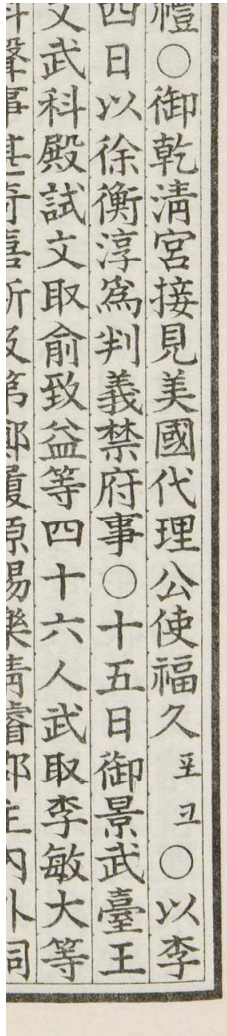 禮○御乾淸宮接見美國代理公使福久포크○以李
四日以徐衡淳爲判義禁府事○十五日御景武臺王
文武科殿試文取俞致益等四十六人武取李敏大等